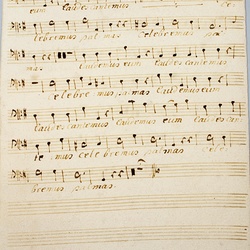 eum laudes cantemus ce-
lebremus palmas Celebremus pal-
mas. laudemus eum laudes cantemus
celebremus palmas laudemus eum
laudes cantemus laudemus eum laudes can-
te mus celebremus palmas cele-
bremus palmas.